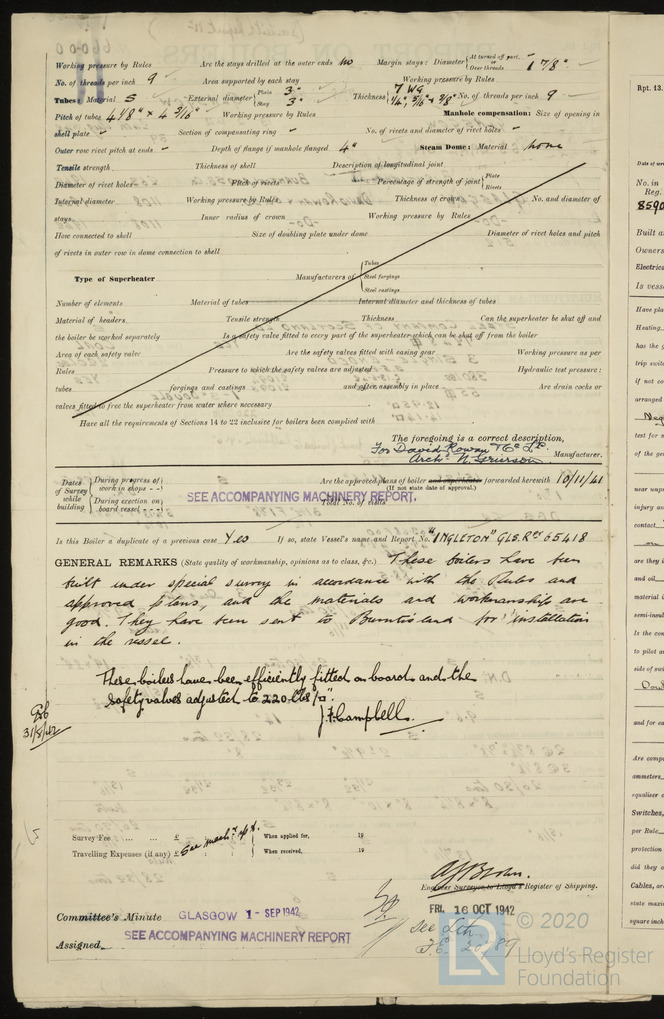 Working pressure by Rules Are the stays drilled at the outer ends No Margin stays: Diameter { At turned off part, or Over threads 1 7/8"
No. of threads per inch 9 Area supported by each stay Working pressure by Rules
Tubes: Material S External diameter { Plain 3" Stay 3" Thickness { 7 WG 1/4", 5/16" & 3/8" No. of threads per inch 9
Pitch of tubes 4 1/8" x 4 3/16" Working pressure by Rules Manhole compensation: Size of opening in
shell plate Section of compensating ring No. of rivets and diameter of rivet holes
Outer row rivet pitch at ends Depth of flange if manhole flanged 4" Steam Dome: Material None
Tensile strength Thickness of shell Description of longitudinal joint
Diameter of rivet holes Pitch of rivets Percentage of strength of joint { Plate Rivets
Internal diameter Working pressure by Rules Thickness of crown No. and diameter of
stays Inner radius of crown Working pressure by Rules
How connected to shell Size of doubling plate under dome Diameter of rivet holes and pitch
of rivets in outer row in dome connection to shell
Type of Superheater Manufacturers of { Tubes Steel forgings Steel castings
Number of elements Material of tubes Internal diameter and thickness of tubes
Material of headers Tensile strength Thickness Can the superheater be shut off and
the boiler be worked separately Is a safety valve fitted to every part of the superheater which can be shut off from the boiler
Area of each safety valve Are the safety valves fitted with easing gear Working pressure as per
Rules Pressure to which the safety valves are adjusted Hydraulic test pressure:
tubes forgings and castings and after assembly in place Are drain cocks or
valves fitted to free the superheater from water where necessary
Have all the requirements of Sections 14 to 22 inclusive for boilers been complied with
The foregoing is a correct description,
For David Rowan & Co Ld.
Archd. N. Grierson Manufacturer.
Dates of Survey while building { During progress of work in shops - - During erection on board vessel - - - Are the approved plans of boiler and superheater forwarded herewith 10/11/41
(If not state date of approval.)
SEE ACCOMPANYING MACHINERY REPORT.
Total No. of visits
Is this Boiler a duplicate of a previous case Yes If so, state Vessel's name and Report No. "INGLETON" GLS. Rpt 65418
GENERAL REMARKS (State quality of workmanship, opinions as to class, &c.) These boilers have been
built under special survey in accordance with the Rules and
approved plans, and the materials and workmanship are
good. They have been sent to Burntisland for installation
in the vessel.
These boilers have been efficiently fitted on board and the
Safety valves adjusted to 220 lbs/□".
J. F. Campbell.
31/8/42
Survey Fee ... ... £ See Mach. rpt. { When applied for, 19
Travelling Expenses (if any) £ { When received, 19
Engineer Surveyor to Lloyd's Register of Shipping.
Committee's Minute GLASGOW 1 - SEP 1942
FRI. 16 OCT 1942
Assigned SEE ACCOMPANYING MACHINERY REPORT
see
© 2020
Lloyd's Register
Foundation
Rpt. 13.
No. in
Reg.
8590
Built a
Owners
Electric
Is vess
Have pla
Heating,
has the g
trip switc
if not co
arranged
test for s
of the ge
near unp
injury an
contact
are they i
and oil
material i
semi-insul
Is the co
to pilot a
side of sw
and for ea
Are comp
ammeters
equaliser c
Switches,
per Rule
protection
did they o
Cables, ar
state maxi
square inch